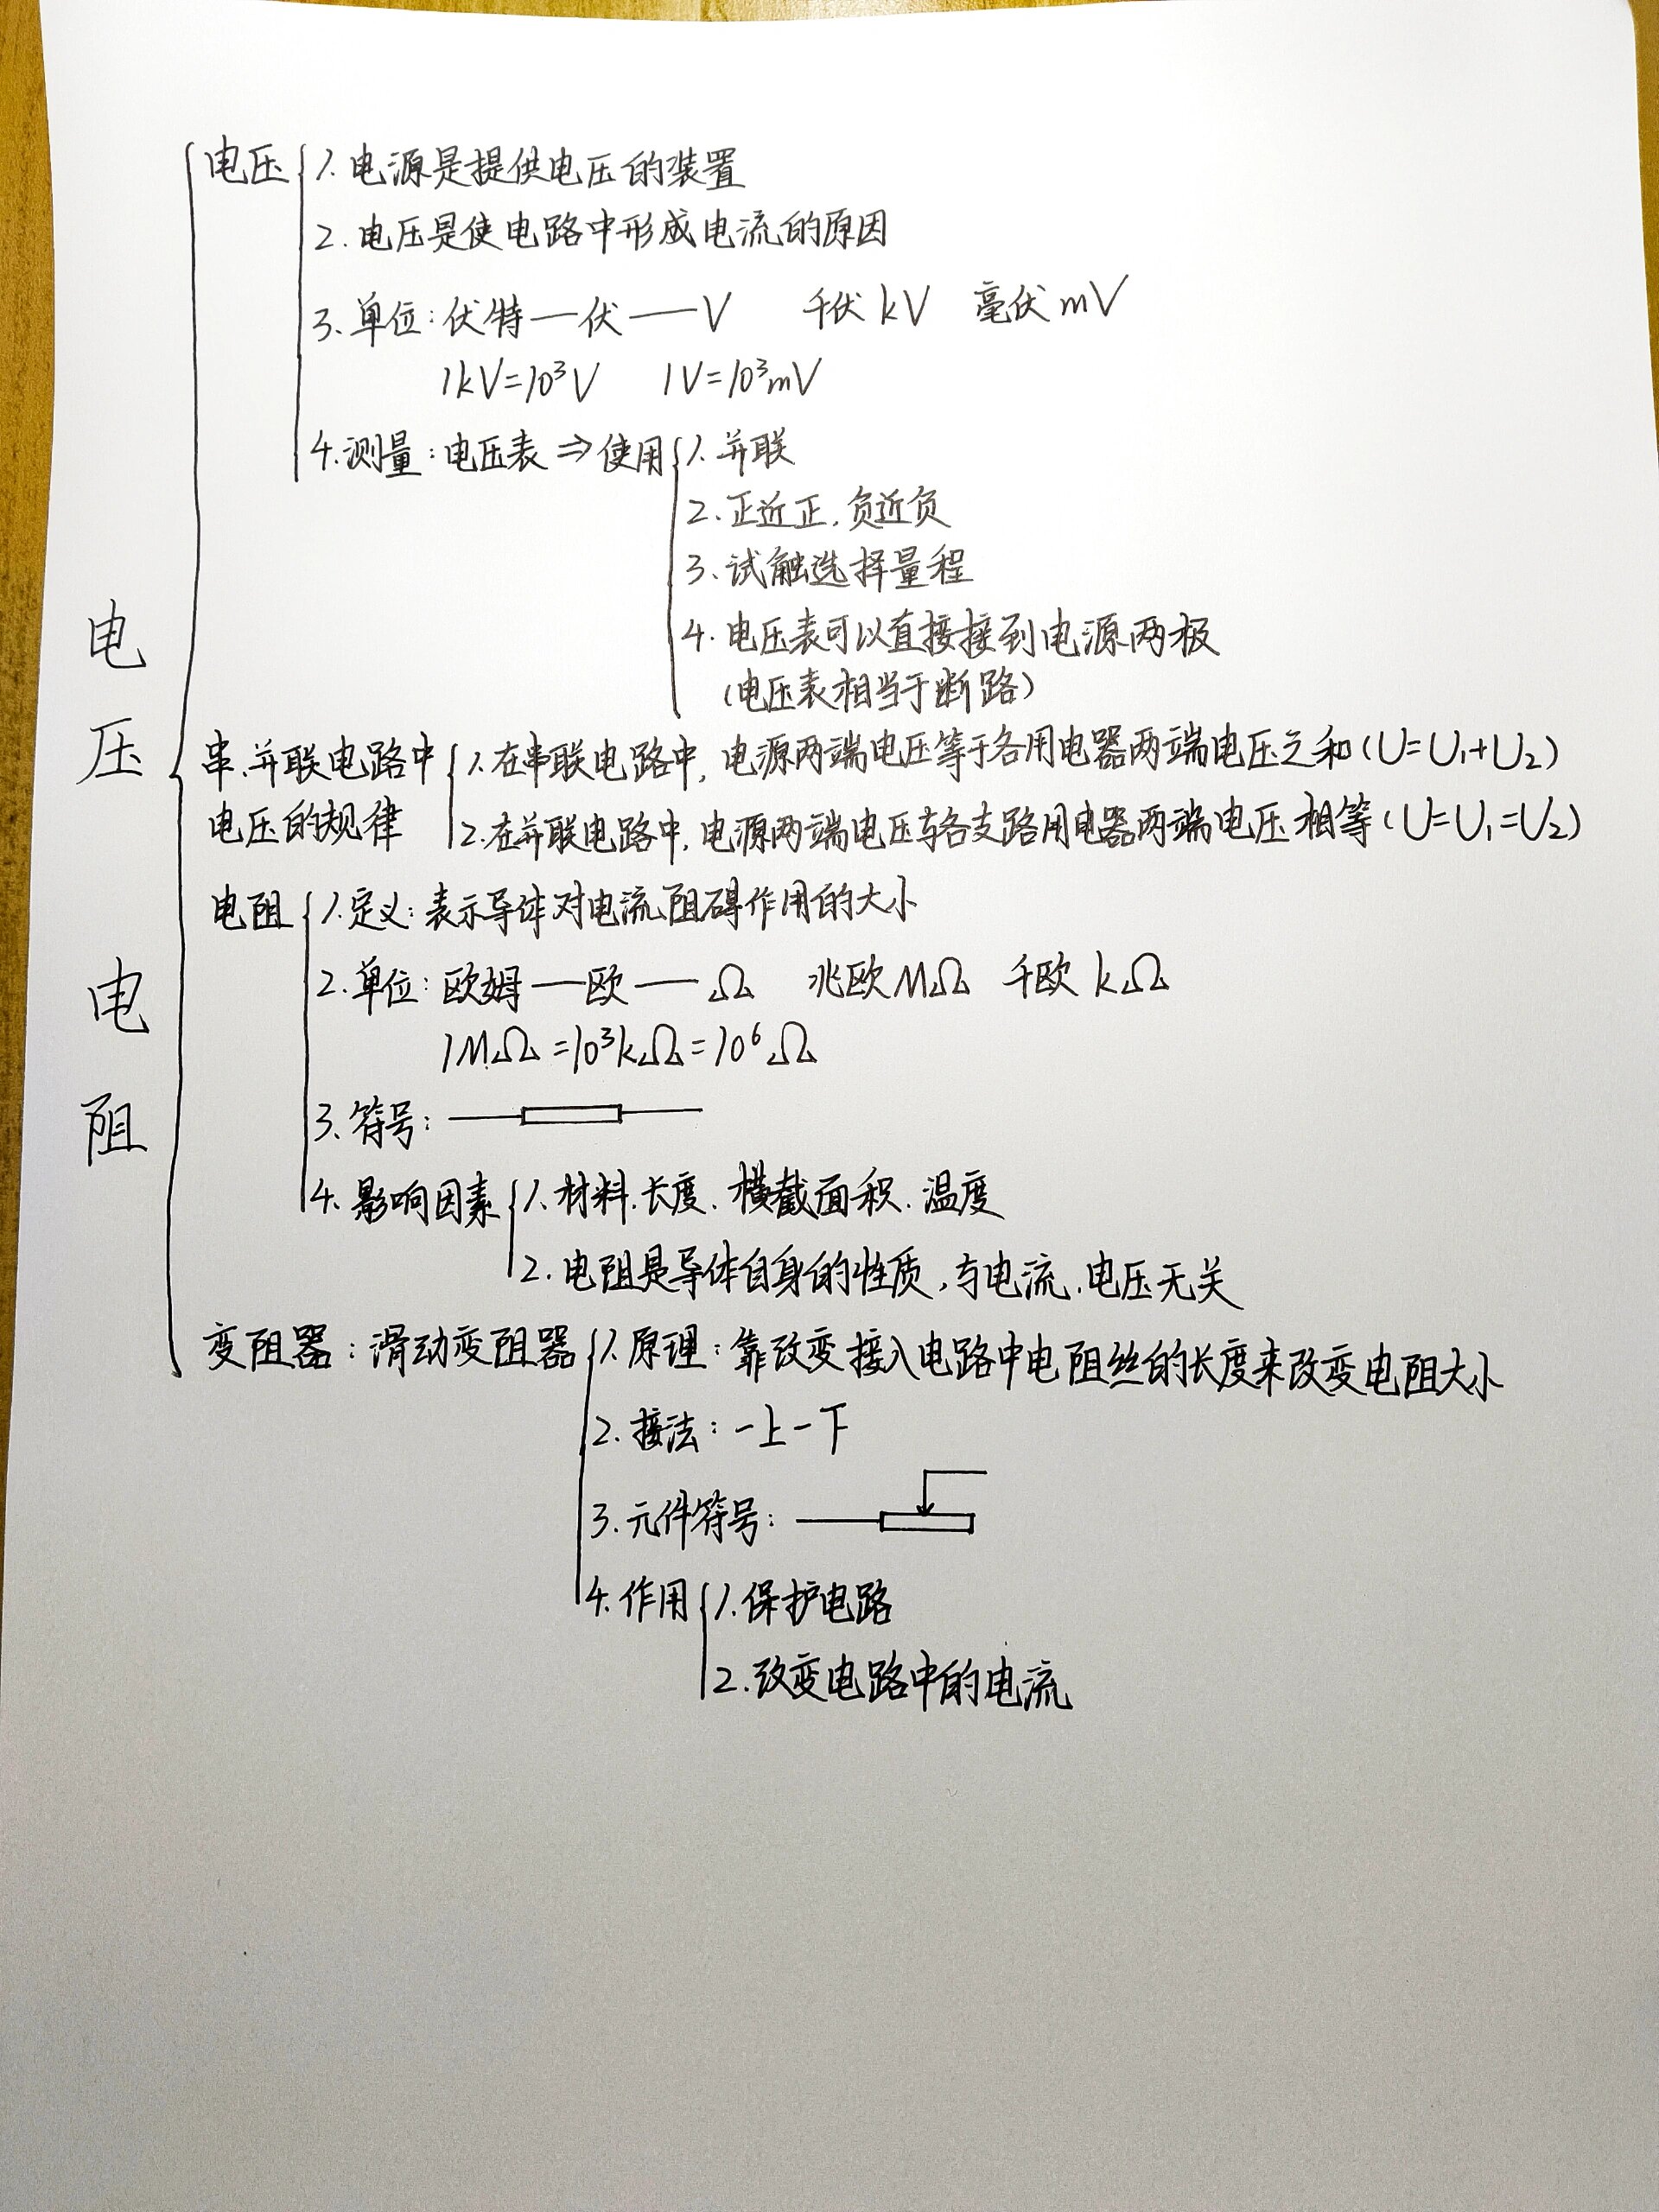 电压 电阻
电压 1. 电源是提供电压的装置
2. 电压是使电路中形成电流的原因
3. 单位: 伏特—伏——V 千伏 kV 毫伏 mV
1kV=10³V 1V=10³mV
4. 测量: 电压表 ⇒ 使用 1. 并联
2. 正近正, 负近负
3. 试触选择量程
4. 电压表可以直接接到电源两极
(电压表相当于断路)
串、并联电路中 1. 在串联电路中, 电源两端电压等于各用电器两端电压之和 (U=U₁+U₂)
电压的规律 2. 在并联电路中, 电源两端电压与各支路用电器两端电压相等 (U=U₁=U₂)
电阻 1. 定义: 表示导体对电流阻碍作用的大小
2. 单位: 欧姆—欧—Ω 兆欧 MΩ 千欧 kΩ
1MΩ=10³kΩ=10⁶Ω
3. 符号:
4. 影响因素 1. 材料、长度、横截面积、温度
2. 电阻是导体自身的性质, 与电流、电压无关
变阻器: 滑动变阻器 1. 原理: 靠改变接入电路中电阻丝的长度来改变电阻大小
2. 接法: 一上一下
3. 元件符号:
4. 作用 1. 保护电路
2. 改变电路中的电流